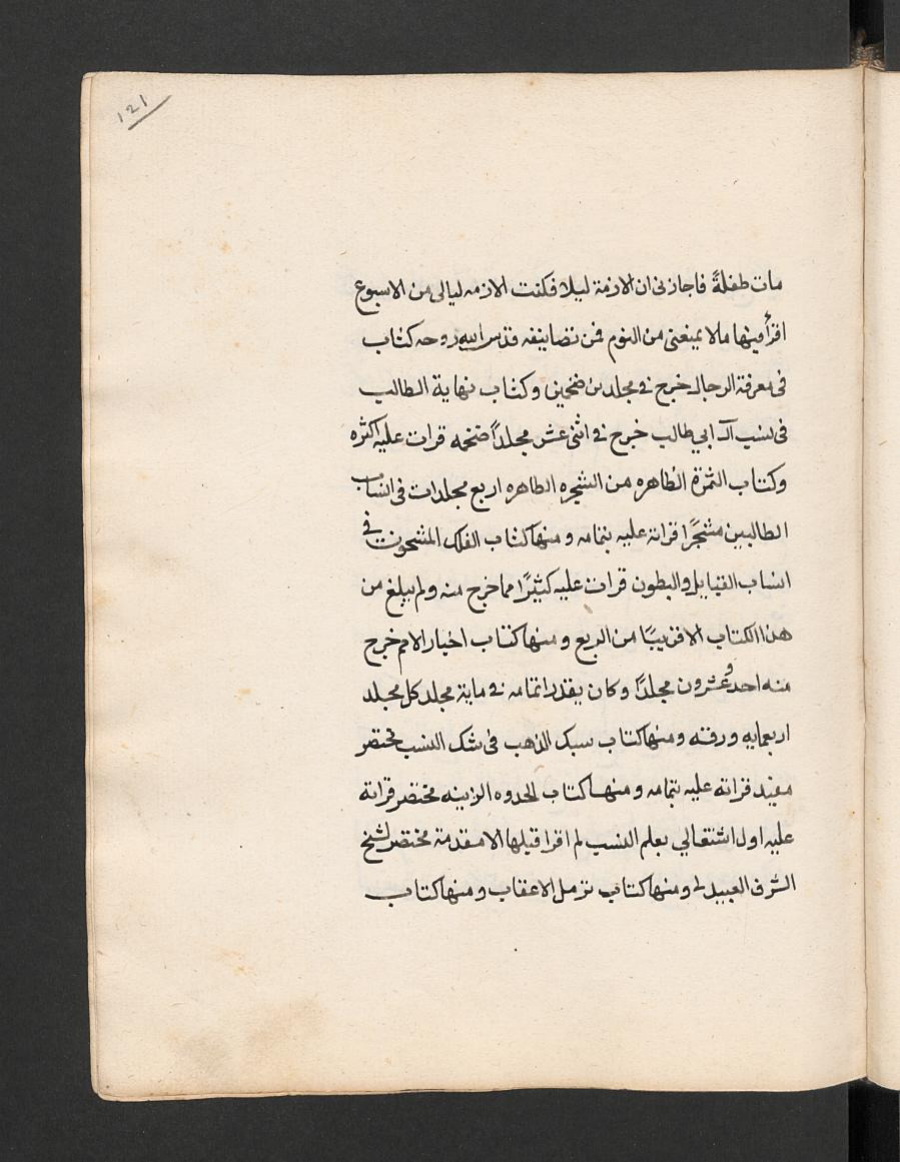 121
مات طفلةً فاجازنى ان الازمة ليلا فكنت الازمه ليالى من الاسبوع
اقرأ فيها ما لا يمنعنى من النوم فمن تصانيفه قدس الله روحه كتاب
فى معرفة الرجال خرج فى مجلدين ضخمين وكتاب نهاية الطالب
فى نسب آل ابي طالب خرج فى اثنى عشر مجلداً ضخمه قرات عليه اكثره
وكتاب الثمرة الظاهره من الشجره الطاهره اربع مجلدات فى انساب
الطالبين مشجرًا قراته عليه بتمامه ومنها كتاب الفلك المشحون فى
انساب القبايل والبطون قرات عليه كثيرًا مما خرج منه ولم يبلغ من
هذا الكتاب الا قريبًا من الربع ومنها كتاب اخبار الامم خرج
منه احد وعشرون مجلدًا وكان يقدر اتمامه فى ماية مجلد كل مجلد
اربعمايه ورقه ومنها كتاب سبك الذهب فى شك النسب مختصر
مفيد قراته عليه بتمامه ومنها كتاب الحدوه الزينه مختصر قراته
عليه اول اشتغالي بعلم النسب لم اقرا قبلها الا مقدمة مختصر لشيخ
الشرف العبيدلى ومنها كتاب تزمل الاعقاب ومنها كتاب